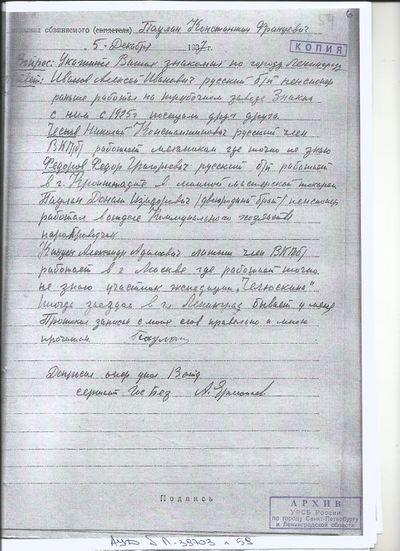 обвиняемого (свидетеля) Паулан Константин Францевич
5 Декабря 1937 г.
КОПИЯ
6
Вопрос: Укажите Ваших знакомых по городу Ленинград
Ответ: Иванов Алексей Иванович русский б/п пенсионер
раньше работал на трубочном заводе Знаком
с ним с 1925 г посещали друг друга.
Николай Константинович русский член
ВКП(б) работает механиком где точно не знаю
Федоров Федор Григорьевич русский б/п работает
в г. Кронштадте в минной мастерской токарем
Паулан Донат Изидорович (двоюродный брат) пенсионер
работал в отделе Коммунального хозяйства
Александр Адамович латыш член ВКП(б)
работает в г Москве где работает точно
не знаю участник экспедиции „Челюскина"
Иногда заезжая в г. Ленинград бывает у меня
Протокол записан с моих слов правильно и мною
прочитан Паулан
Допросил опер упол 3 отд
сержант Гос Без А. Ермолаев
Подпись
АРХИВ
УФСБ России
по городу Санкт-Петербургу
и Ленинградской области
АУД № П-39703 л 59